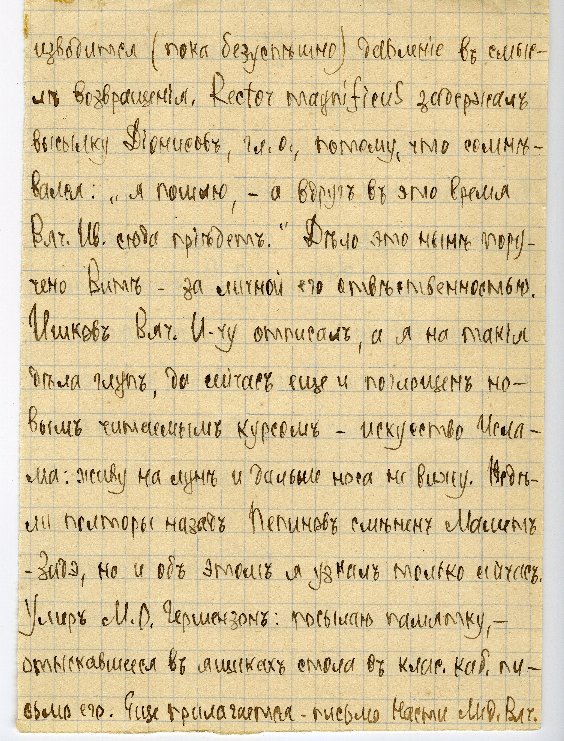 изводится (пока безуспѣшно) давленіе въ смыс-
лѣ возвращенія. Rector magnificus задержалъ
высылку Діонисовъ, гл. о., потому, что сомнѣ-
вался: „я пошлю, – а вдругъ въ это время
Вяч. Ив. сюда пріѣдетъ.“ Дѣло это нынѣ пору-
чено Витѣ – за личной его отвѣтственностью.
Ишковъ Вяч. И-чу отписалъ, а я на такія
дѣла глупъ, да сейчасъ еще и поглощенъ но-
вымъ читаемымъ курсомъ – искусство Исла-
ма: живу на лунѣ и дальше носа не вижу. Недѣ-
ли полторы назадъ Пепиновъ смѣненъ Мамедъ
-Задэ, но и объ этомъ я узналъ только сейчасъ.
Умеръ М.О. Гершензонъ: посылаю памятку, –
отыскавшееся въ ящикахъ стола въ клас. каб. пи-
сьмо его. Еще прилагается – письмо Насти Мид. Вяч.